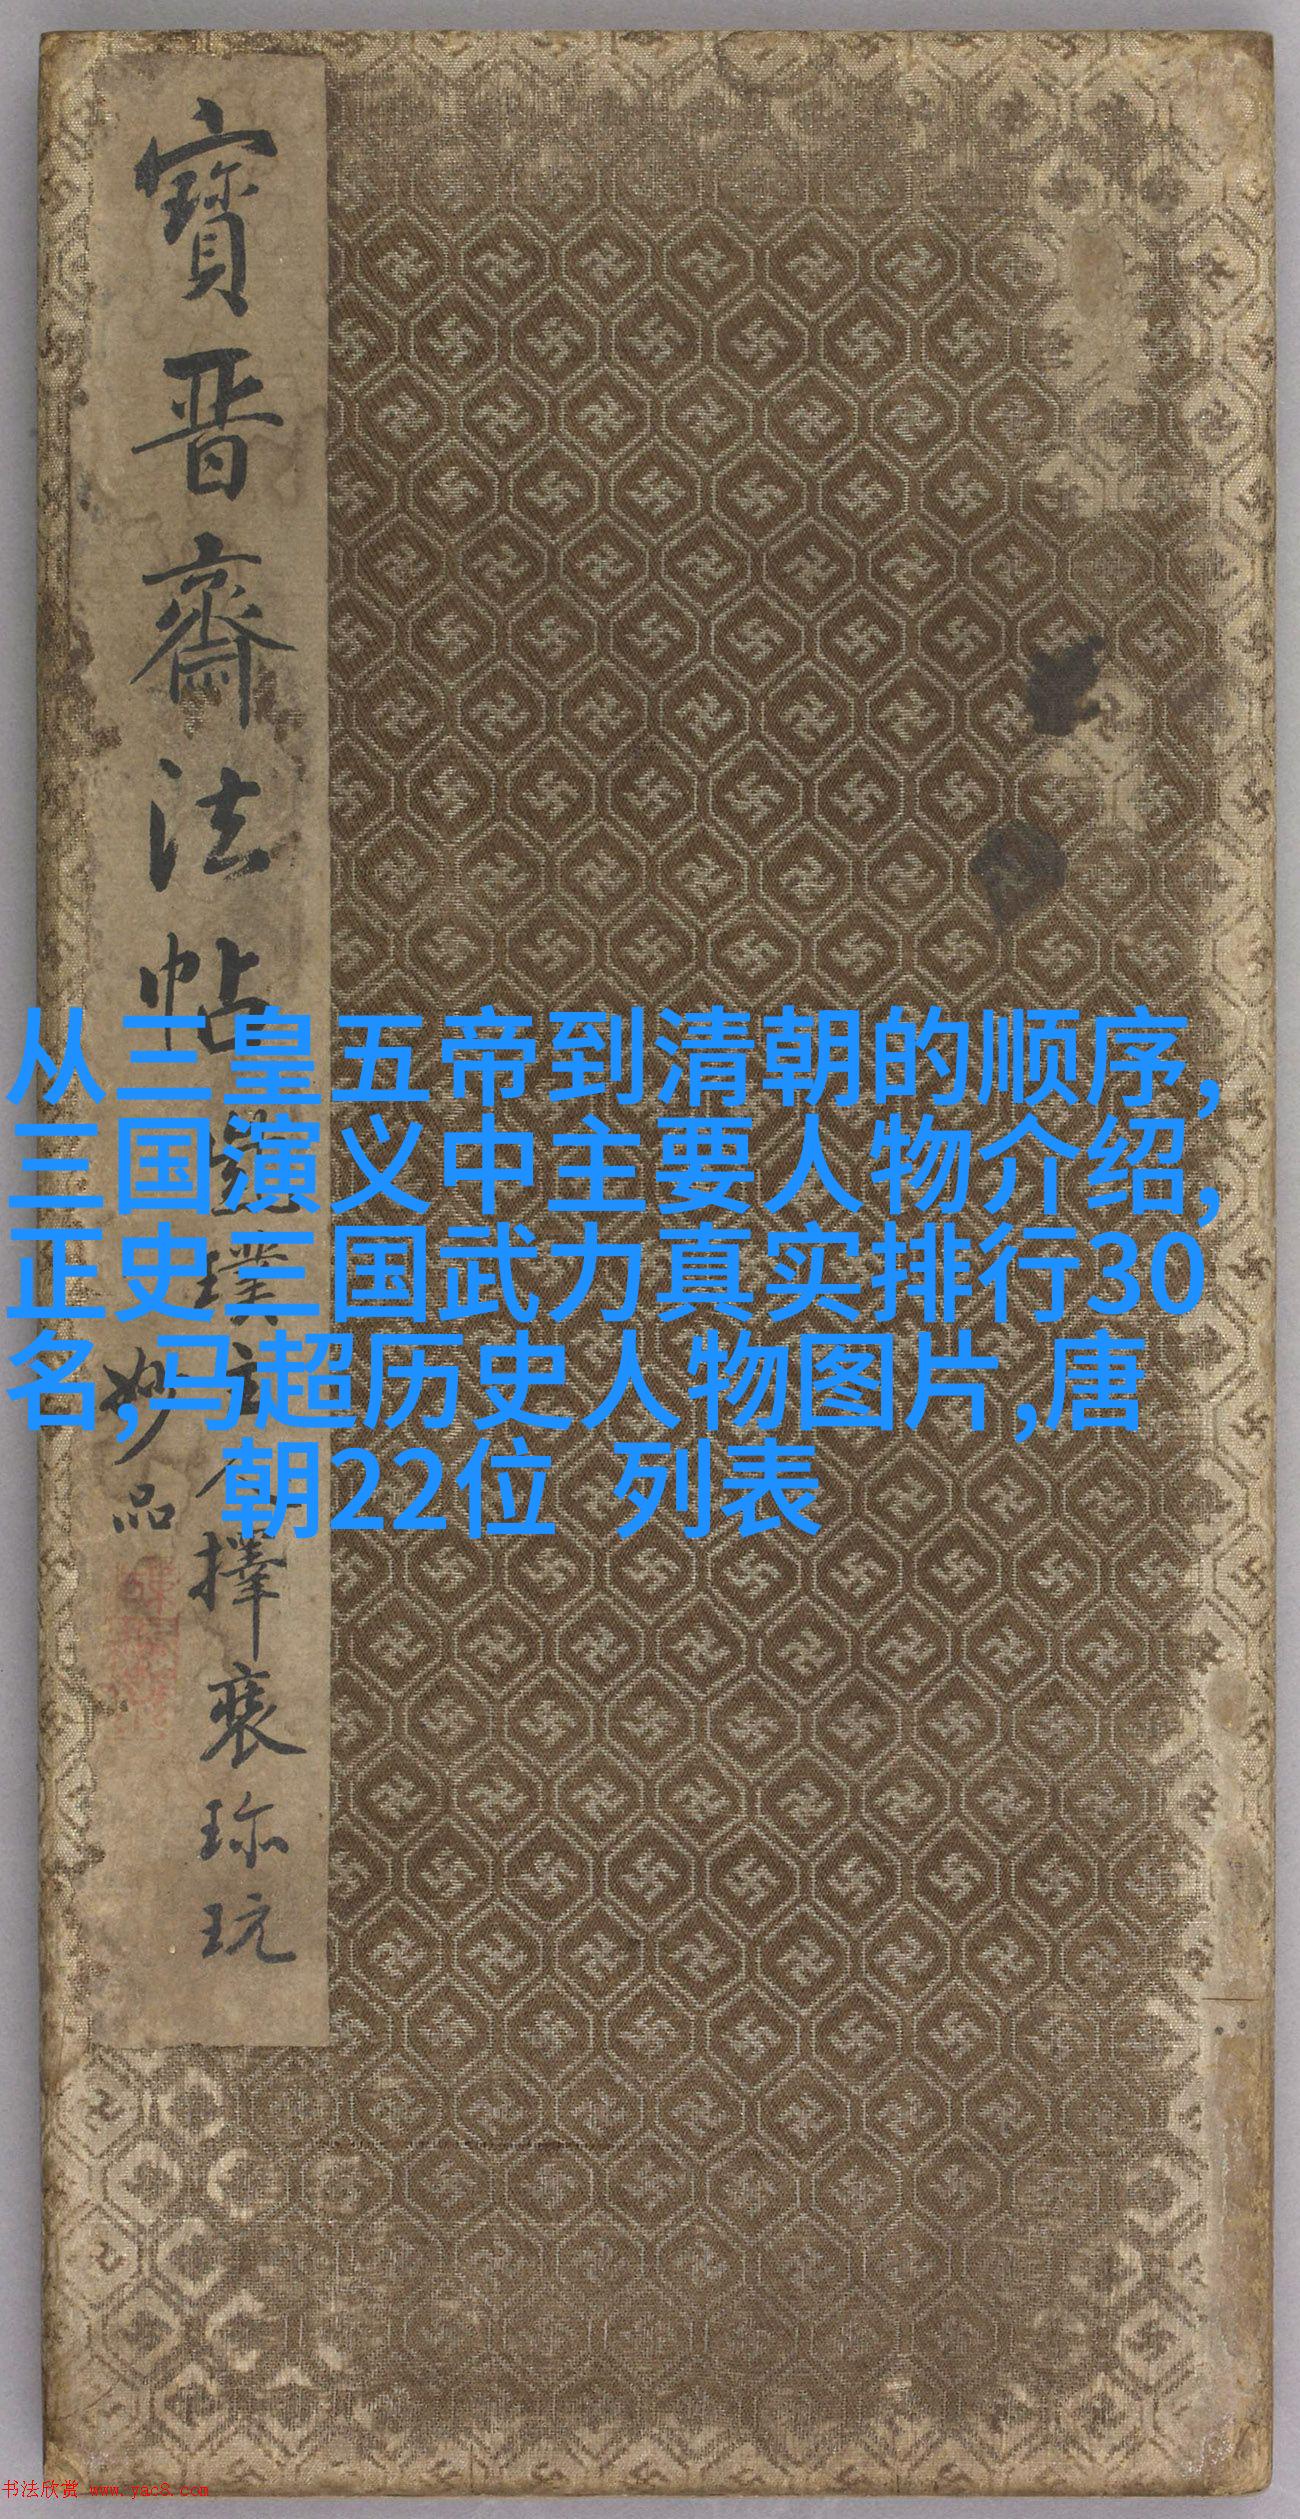 寶晋齋法帖
趙璞玄
擇裘珎玩
妙品
从三皇五帝到清朝的顺序,
三国演义中主要人物介绍,
正史三国武力真实排行30
名,马超历史人物图片,唐
朝22位 列表
书法欣赏 www.yac8.com